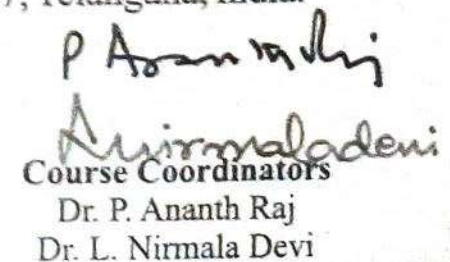 7, Telangana, India.
P Ananth Raj
L Nirmaladevi
Course Coordinators
Dr. P. Ananth Raj
Dr. L. Nirmala Devi